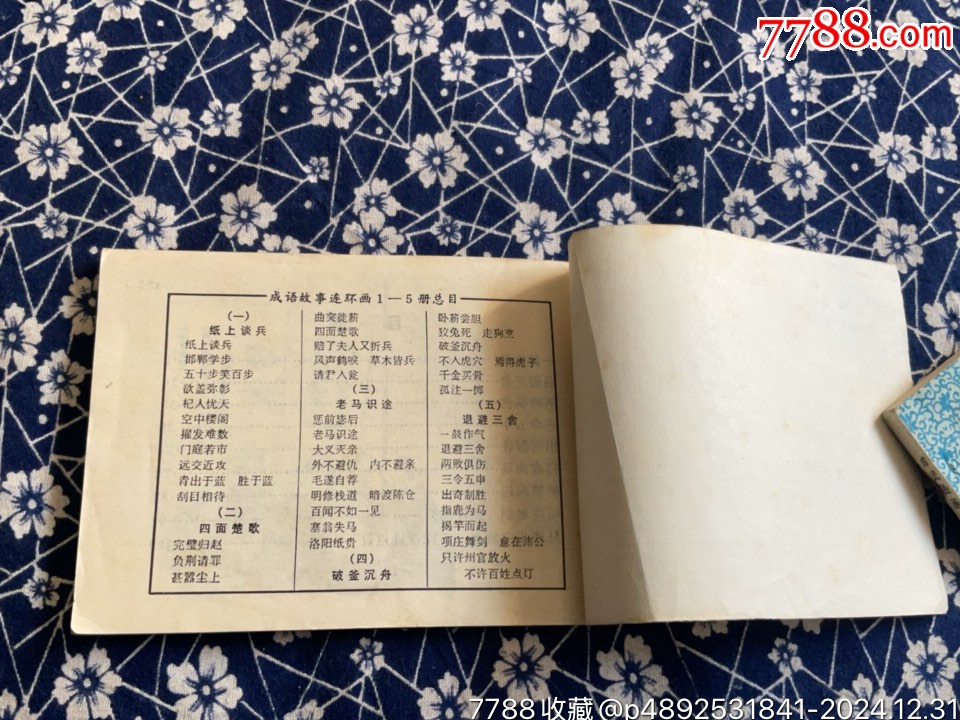 7788.com
成语故事连环画1—5册总目
(一)
纸上谈兵
纸上谈兵
邯郸学步
五十步笑百步
欲盖弥彰
杞人忧天
空中楼阁
擢发难数
门庭若市
远交近攻
青出于蓝 胜于蓝
刮目相待
(二)
四面楚歌
完璧归赵
负荆请罪
甚嚣尘上
曲突徙薪
四面楚歌
赔了夫人又折兵
风声鹤唳 草木皆兵
请君入瓮
(三)
老马识途
惩前毖后
老马识途
大义灭亲
外不避仇 内不避亲
毛遂自荐
明修栈道 暗渡陈仓
百闻不如一见
塞翁失马
洛阳纸贵
(四)
破釜沉舟
卧薪尝胆
狡兔死 走狗烹
破釜沉舟
不入虎穴 焉得虎子
千金买骨
孤注一掷
(五)
退避三舍
一鼓作气
退避三舍
两败俱伤
三令五申
出奇制胜
指鹿为马
揭竿而起
项庄舞剑 意在沛公
只许州官放火
不许百姓点灯
7788收藏@p4892531841-2024.12.31